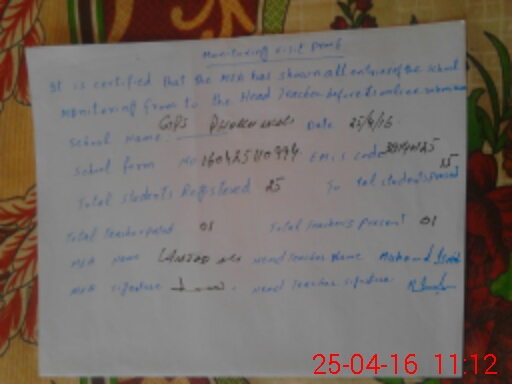 Monitoring visit Proof
It is certified that the MEA has shown all entries of the school
monitoring from to the Head Teacher before its online submission
School Name GPS Date 25/4/16
School form No EMIS code
Total students Registered 25 To tal students present 15
Total Teacher posted 01 Total Teachers present 01
MEA Name Head Teacher Name
MEA signature Head Teacher signature
25-04-16 11:12